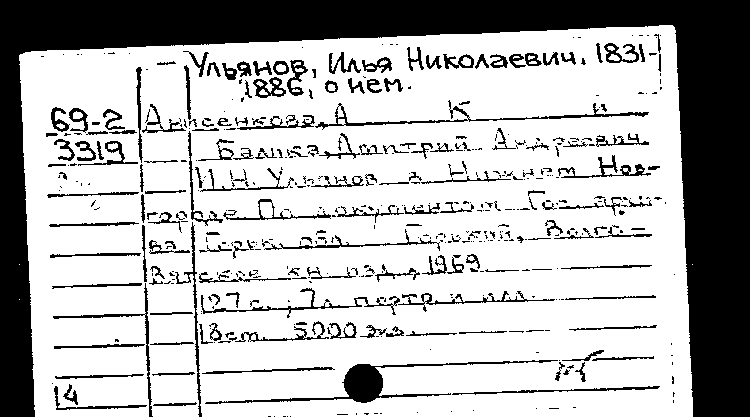 — Ульянов, Илья Николаевич, 1831-
1886, о нем.
69-2 Анисенкова, А К и
3319 Балика, Дмитрий Андреевич.
И.Н. Ульянов в Нижнем Нов-
городе По документам Гос архи-
ва Горьк. обл. Горький, Волго-
Вятское кн изд, 1969
127 с.; 7л портр и илл.
18 cm. 5000 экз.
14